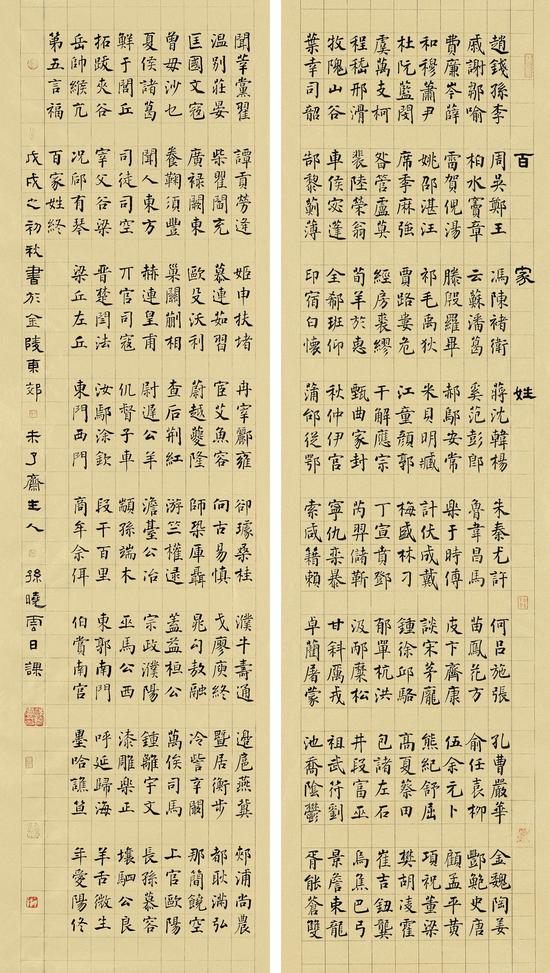 百家姓
趙錢孫李 周吳鄭王 馮陳褚衛 蔣沈韓楊 朱秦尤許 何呂施張 孔曹嚴華 金魏陶姜
戚謝鄒喻 柏水竇章 云蘇潘葛 奚范彭郎 魯韋昌馬 苗鳳花方 俞任袁柳 酆鮑史唐
費廉岑薛 雷賀倪湯 滕殷羅畢 郝鄔安常 樂于時傅 皮卞齊康 伍余元卜 顧孟平黃
和穆蕭尹 姚邵湛汪 祁毛禹狄 米貝明臧 計伏成戴 談宋茅龐 熊紀舒屈 項祝董梁
杜阮藍閔 席季麻強 賈路婁危 江童顏郭 梅盛林刁 鍾徐邱駱 高夏蔡田 樊胡凌霍
虞萬支柯 昝管盧莫 經房裘繆 干解應宗 丁宣賁鄧 郁單杭洪 包諸左石 崔吉鈕龔
程嵇邢滑 裴陸榮翁 荀羊於惠 甄曲家封 芮羿儲靳 汲邴糜松 井段富巫 烏焦巴弓
牧隗山谷 車侯宓蓬 全郗班仰 秋仲伊宮 寧仇欒暴 甘鈄厲戎 祖武符劉 景詹束龍
葉幸司韶 郜黎薊薄 印宿白懷 蒲邰從鄂 索咸籍賴 卓藺屠蒙 池喬陰鬱 胥能蒼雙
聞莘黨翟 譚貢勞逄 姬申扶堵 冉宰酈雍 郤璩桑桂 濮牛壽通 邊扈燕冀 郟浦尚農
溫別莊晏 柴瞿閻充 慕連茹習 宦艾魚容 向古易慎 戈廖庾終 暨居衡步 都耿滿弘
匡國文寇 廣祿闕東 歐殳沃利 蔚越夔隆 師鞏厙聶 晁勾敖融 冷訾辛闞 那簡饒空
曾毋沙乜 養鞠須豐 巢關蒯相 查后荊紅 游竺權逯 蓋益桓公 萬俟司馬 上官歐陽
夏侯諸葛 聞人東方 赫連皇甫 尉遲公羊 澹臺公冶 宗政濮陽 鍾離宇文 長孫慕容
鮮于閭丘 司徒司空 丌官司寇 仉督子車 顓孫端木 巫馬公西 漆雕樂正 壤駟公良
拓跋夾谷 宰父谷梁 晉楚閆法 汝鄢涂欽 段干百里 東郭南門 呼延歸海 羊舌微生
岳帥緱亢 況郈有琴 梁丘左丘 東門西門 商牟佘佴 伯賞南宮 墨哈譙笪 年愛陽佟
第五言福 百家姓終
戊戌之初秋書於金陵東郊 未了齋主人 孫曉雲日課